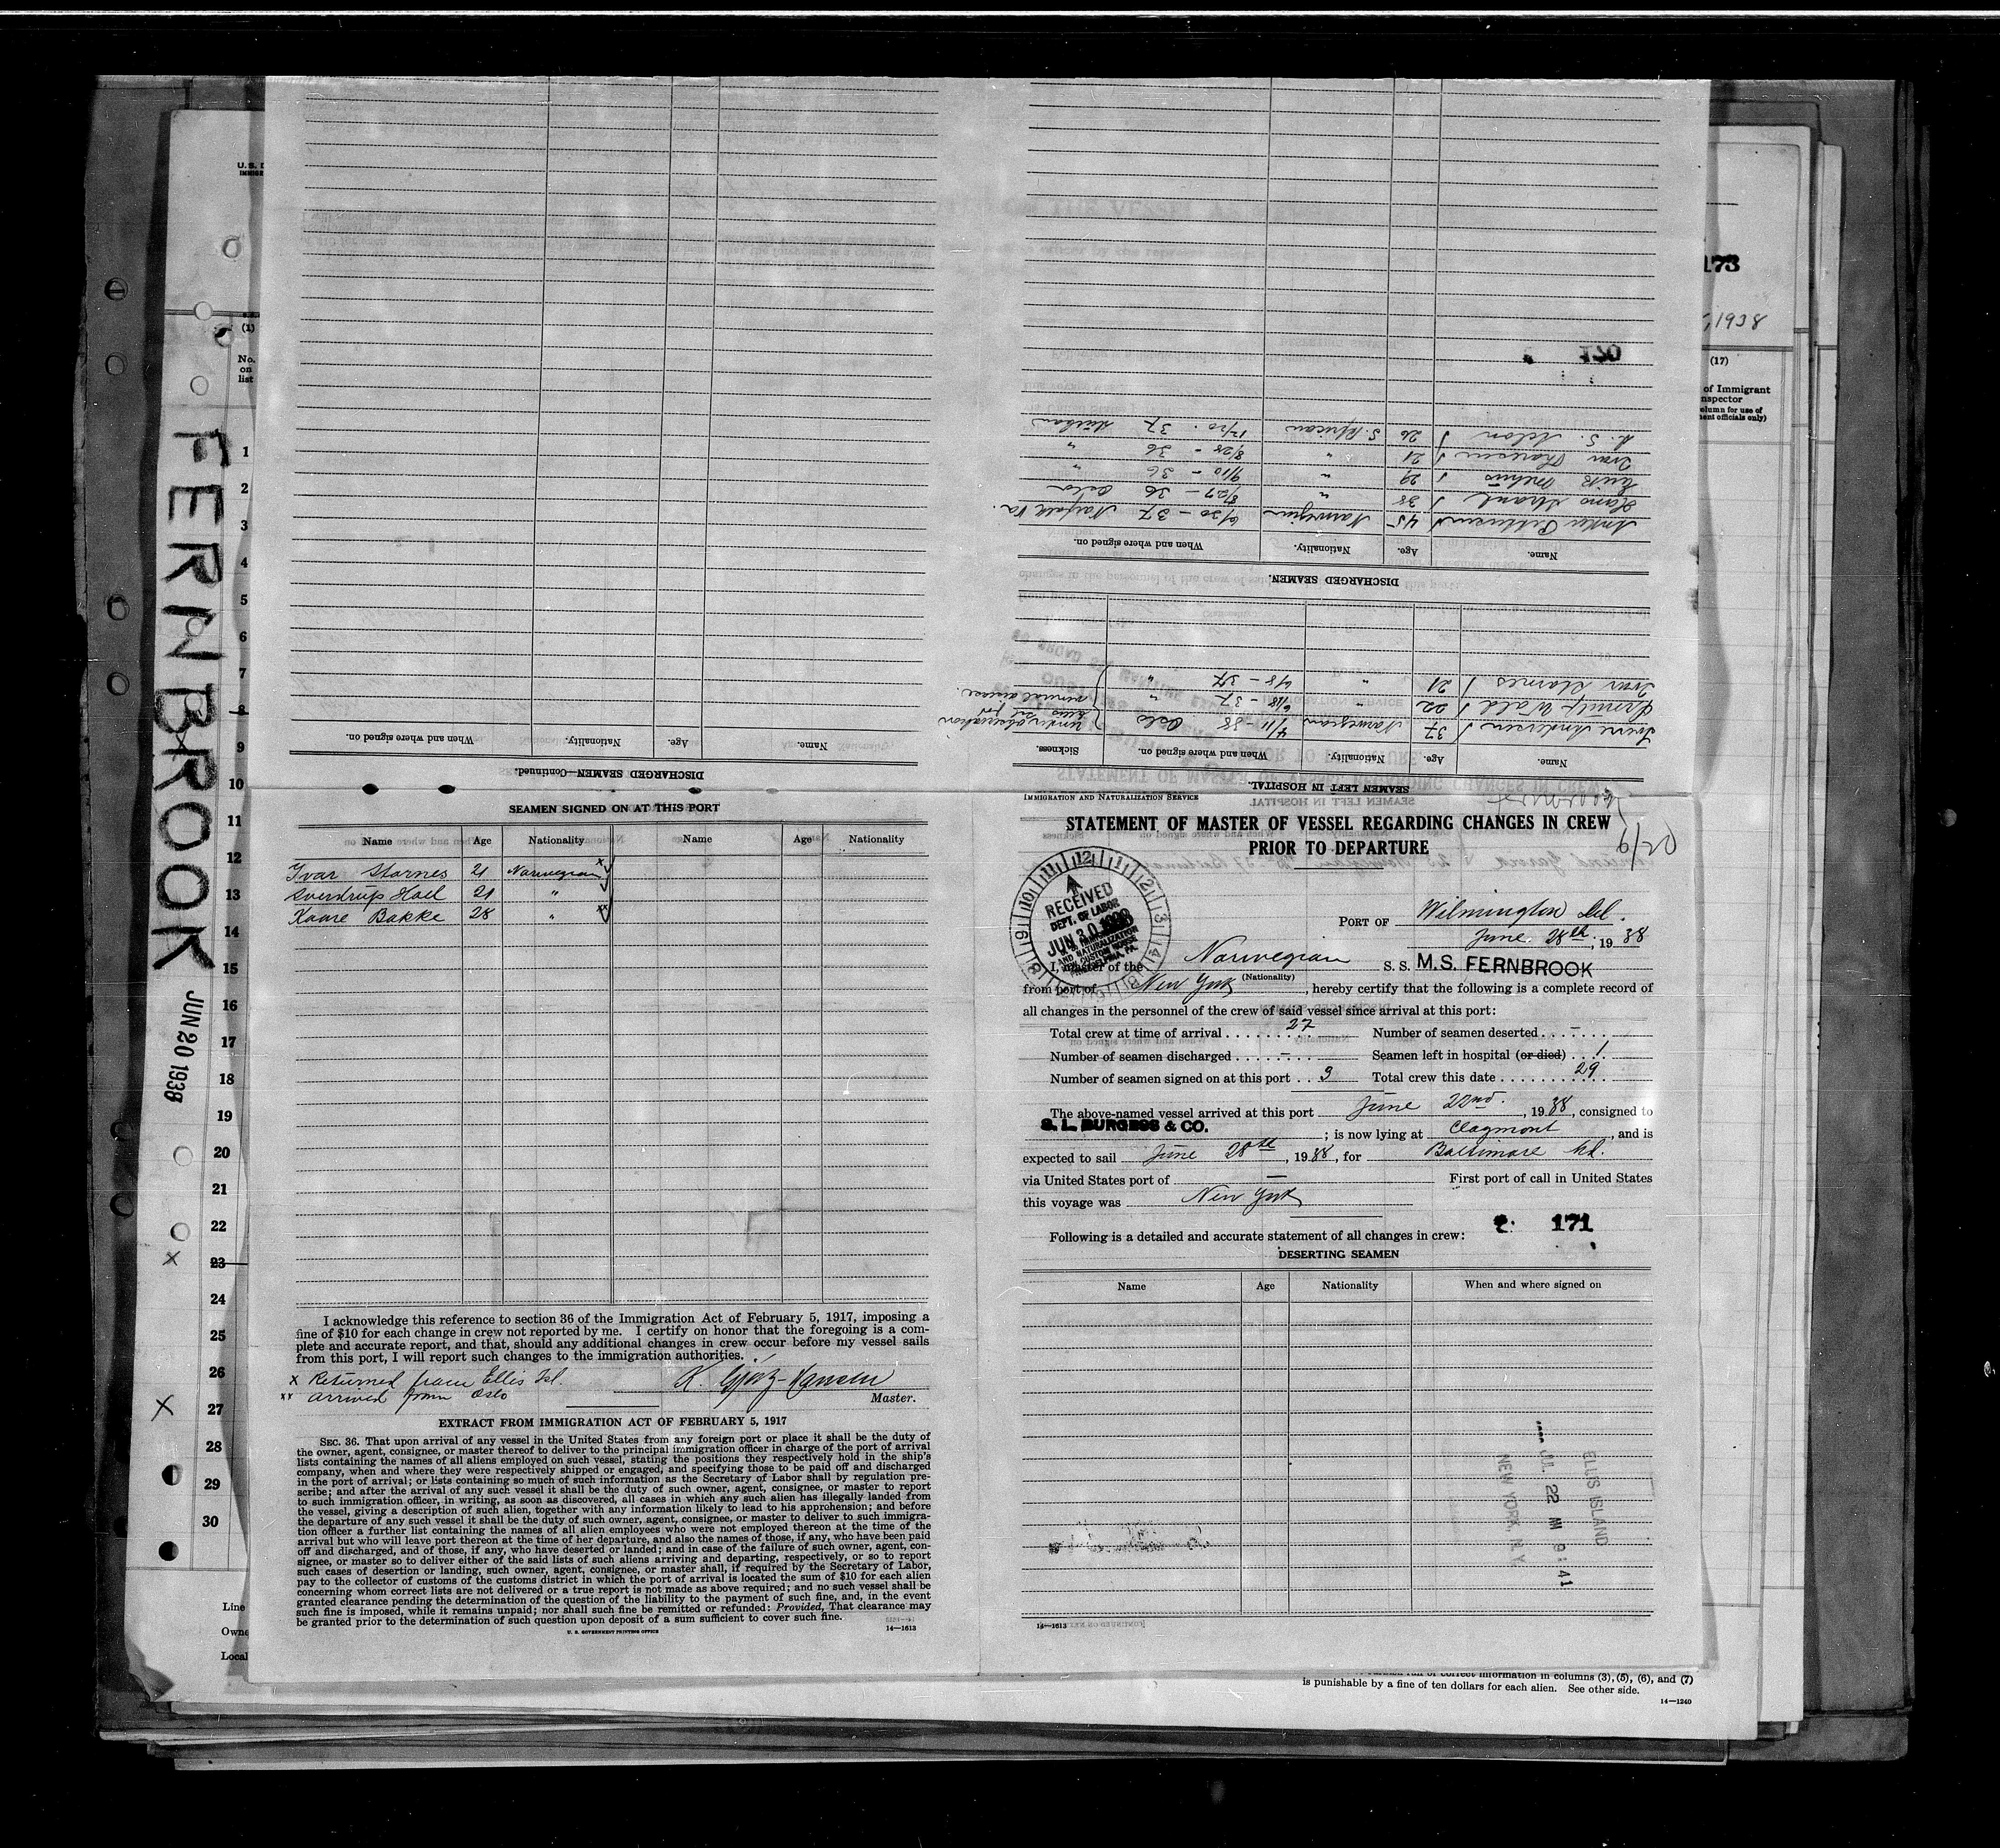 FERNBROOK
JUN 20 1938
U.S. D
IMMIGR
(1)
No.
on
list
1
2
3
4
5
6
7
8
9
10
11
12
13
14
15
16
17
18
19
20
21
22
23
24
25
26
27
28
29
30
Line
Owne
Local
173
, 1938
(17)
of Immigrant
nspector
olumn for use of
ment officials only)
SEAMEN LEFT IN HOSPITAL
Name. Age. Nationality. When and where signed on. Sickness.
Sverre Andersen 37 Norwegian 4/11-38 Oslo Under observation
Wald 22 " 6/18-37 " Ellis Isl. for
Ivar Stornes 21 " 4/8-37 " venereal disease.
DISCHARGED SEAMEN.
Name. Age. Nationality. When and where signed on.
Anker Pettersen 45 Norwegian 6/20-37 Norfolk Va.
Strand 38 " 8/27-36 Oslo
29 " 9/10-36 "
Ivar Thoresen 21 " 8/28-36 "
A. S. 26 S. African 12/20.37
120
DISCHARGED SEAMEN—Continued.
Name. Age. Nationality. When and where signed on.
SEAMEN SIGNED ON AT THIS PORT
Name Age Nationality Name Age Nationality
Ivar Stornes 21 Norwegian x
Sverdrup Hoel 21 "
Kaare Bakke 28 " xx
I acknowledge this reference to section 36 of the Immigration Act of February 5, 1917, imposing a
fine of $10 for each change in crew not reported by me. I certify on honor that the foregoing is a com-
plete and accurate report, and that, should any additional changes in crew occur before my vessel sails
from this port, I will report such changes to the immigration authorities.
x Returned from Ellis Isl.
xx arrived from Oslo
K. Gjörtz-Hansen
Master.
EXTRACT FROM IMMIGRATION ACT OF FEBRUARY 5, 1917
SEC. 36. That upon arrival of any vessel in the United States from any foreign port or place it shall be the duty of
the owner, agent, consignee, or master thereof to deliver to the principal immigration officer in charge of the port of arrival
lists containing the names of all aliens employed on such vessel, stating the positions they respectively hold in the ship's
company, when and where they were respectively shipped or engaged, and specifying those to be paid off and discharged
in the port of arrival; or lists containing so much of such information as the Secretary of Labor shall by regulation pre-
scribe; and after the arrival of any such vessel it shall be the duty of such owner, agent, consignee, or master to report
to such immigration officer, in writing, as soon as discovered, all cases in which any such alien has illegally landed from
the vessel, giving a description of such alien, together with any information likely to lead to his apprehension; and before
the departure of any such vessel it shall be the duty of such owner, agent, consignee, or master to deliver to such immigra-
tion officer a further list containing the names of all alien employees who were not employed thereon at the time of the
arrival but who will leave port thereon at the time of her departure, and also the names of those, if any, who have been paid
off and discharged, and of those, if any, who have deserted or landed; and in case of the failure of such owner, agent, con-
signee, or master so to deliver either of the said lists of such aliens arriving and departing, respectively, or so to report
such cases of desertion or landing, such owner, agent, consignee, or master shall, if required by the Secretary of Labor,
pay to the collector of customs of the customs district in which the port of arrival is located the sum of $10 for each alien
concerning whom correct lists are not delivered or a true report is not made as above required; and no such vessel shall be
granted clearance pending the determination of the question of the liability to the payment of such fine, and, in the event
such fine is imposed, while it remains unpaid; nor shall such fine be remitted or refunded: Provided, That clearance may
be granted prior to the determination of such question upon deposit of a sum sufficient to cover such fine.
U. S. GOVERNMENT PRINTING OFFICE
14—1613
IMMIGRATION AND NATURALIZATION SERVICE
STATEMENT OF MASTER OF VESSEL REGARDING CHANGES IN CREW
PRIOR TO DEPARTURE
RECEIVED
DEPT. OF LABOR
JUN 30 1938
AND NATURALIZATION
NEW CUSTOM HOUSE
PHILADELPHIA, PA.
PORT OF Wilmington Del.
June 28th, 19 38
I, master of the Norwegian S. S. M.S. FERNBROOK
(Nationality)
from port of New York, hereby certify that the following is a complete record of
all changes in the personnel of the crew of said vessel since arrival at this port:
Total crew at time of arrival 27 Number of seamen deserted –
Number of seamen discharged – Seamen left in hospital (or died) 1
Number of seamen signed on at this port 3 Total crew this date 29
The above-named vessel arrived at this port June 22nd., 19 38, consigned to
S. L. BURGESS & CO. ; is now lying at Claymont, and is
expected to sail June 28th, 19 38, for Baltimore Md.
via United States port of — First port of call in United States
this voyage was New York
Following is a detailed and accurate statement of all changes in crew:
171
DESERTING SEAMEN
Name Age Nationality When and where signed on
ELLIS ISLAND
JUL 22 AM 9:41
NEW YORK, N.Y.
14—1613
of correct information in columns (3), (5), (6), and (7)
is punishable by a fine of ten dollars for each alien. See other side.
14—1240